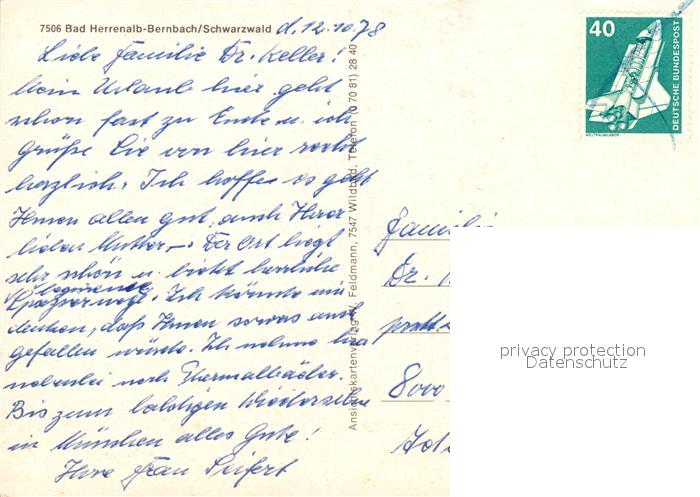 7506 Bad Herrenalb-Bernbach/Schwarzwald d. 12.10.78
Liebe Familie Dr. Keller!
Mein Urlaub hier geht
schon fast zu Ende u. ich
grüße Sie von hier recht
herzlich. Ich hoffe es geht
Ihnen allen gut, auch Ihrer
lieben Mutter. – Der Ort liegt
sehr schön u. bietet herrliche
bequeme
Spazierwege. Ich könnte mir
denken, daß Ihnen sowas auch
gefallen würde. Ich nehme hier
nebenbei noch Thermalbäder.
Bis zum baldigen Wiedersehen
in München alles Gute!
Ihre Frau Seifert
Ansichtskartenverlag W. Feldmann, 7547 Wildbad, Telefon (0 70 81) 28 40
40
DEUTSCHE BUNDESPOST
WELTRAUMLABOR
Familie
Dr.
prakt.
8000
privacy protection
Datenschutz